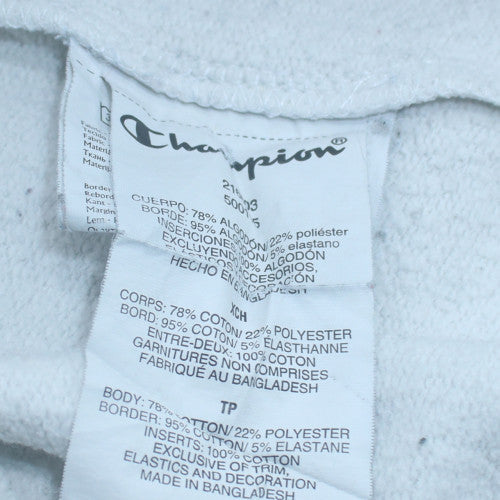 Champion
CUERPO: 78% ALGODÓN/ 22% poliéster
BORDE: 95% ALGODÓN/ 5% elastano
INSERCIONES: 100% ALGODÓN
EXCLUYENDO ACCESORIOS,
HECHO EN BANGLADESH
XCH
CORPS: 78% COTON/ 22% POLYESTER
BORD: 95% COTON/ 5% ELASTHANNE
ENTRE-DEUX: 100% COTON
GARNITURES NON COMPRISES
FABRIQUÉ AU BANGLADESH
TP
BODY: 78% COTTON/ 22% POLYESTER
BORDER: 95% COTTON/ 5% ELASTANE
INSERTS: 100% COTTON
EXCLUSIVE OF TRIM,
ELASTICS AND DECORATION
MADE IN BANGLADESH
Border
Rebord
Kant -